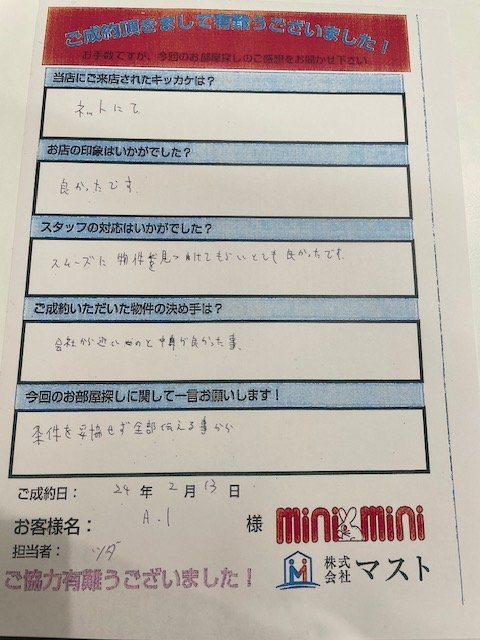 ご成約頂きまして有難うございました！
お手数ですが、今回のお部屋探しのご感想をお聞かせ下さい。
当店にご来店されたキッカケは？
ネットにて
お店の印象はいかがでした？
良かったです。
スタッフの対応はいかがでした？
スムーズに物件を見つけてもらいとても良かったです。
ご成約いただいた物件の決め手は？
会社から近いものと中身が良かった事。
今回のお部屋探しに関して一言お願いします！
条件を妥協せず全部伝える事から
ご成約日： 24 年 2 月 13 日
お客様名： A.I 様
担当者： ツダ
minimini
ご協力有難うございました！
株式会社 マスト